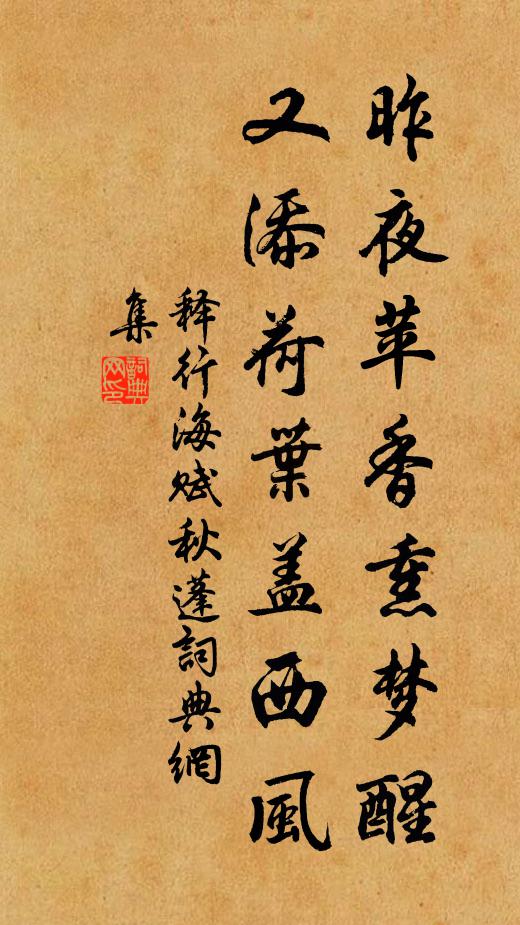 昨夜苹香熏梦醒
又添荷葉盖西風
释行海赋秋蓬詞典網
集
詞典网印